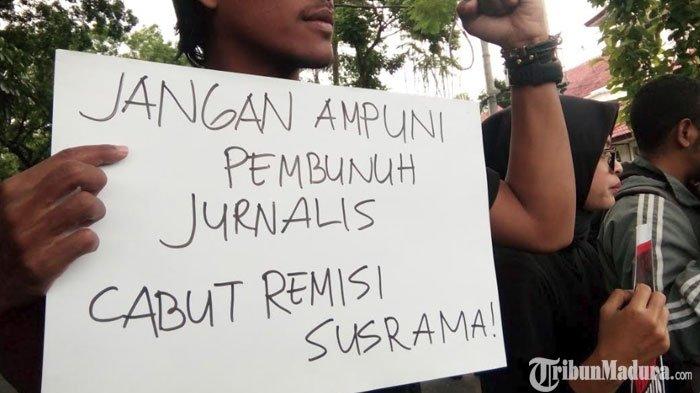 JANGAN AMPUNI
PEMBUNUH
JURNALIS
CABUT REMISI
SUSRAMA!
TribunMadura.com